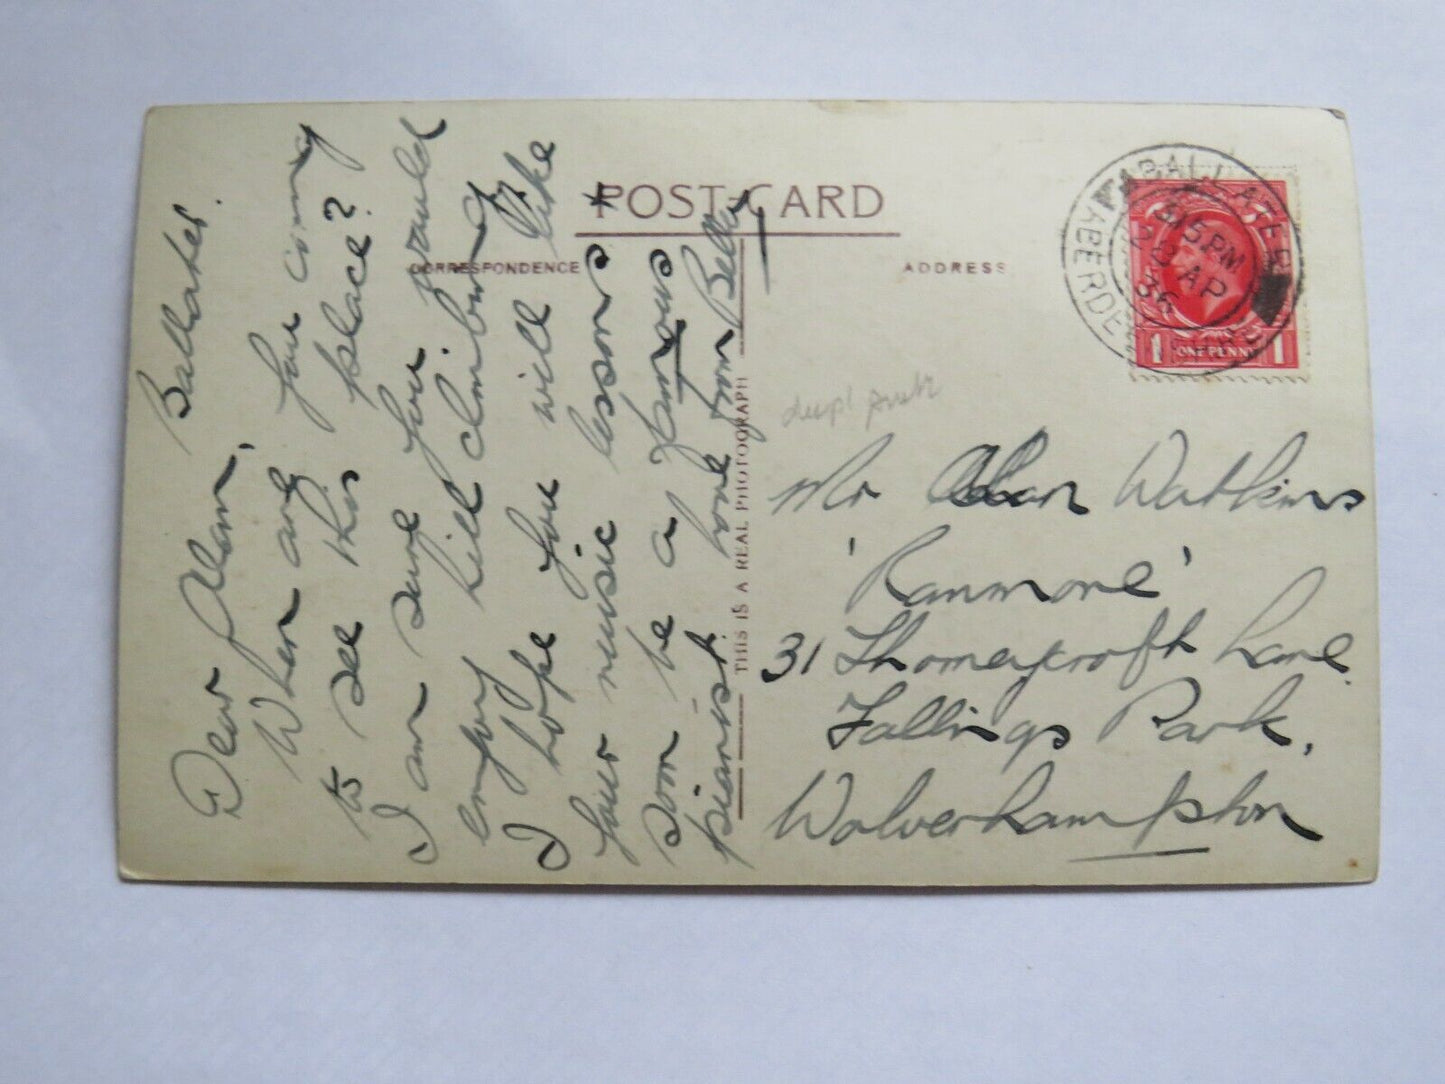 POST CARD
CORRESPONDENCE
ADDRESS
THIS IS A REAL PHOTOGRAPH
Ballater.
Dear Alan,
When are you coming
to see this place?
I am sure you would
enjoy hill climbing.
I hope you will like
your music lessons &
soon be a famous
pianist. love from Betty
BALLATER
4 15 PM
AP
36
ABERDEENSHIRE
1 ONE PENNY 1
Mr Alan Watkins
'Ranmore'
31 Thorneycroft Lane
Fallings Park,
Wolverhampton